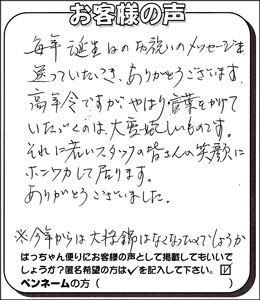 お客様の声
毎年誕生日のお祝いのメッセージを
送っていただき、ありがとうございます。
高年令ですが、やはり言葉をかけて
いただくのは、大変嬉しいものです。
それに若いスタッフの皆さんの笑顔に
ホンワカして居ります。
ありがとうございました。
※今年からは大はなくなったのでしょうか
ばっちゃん便りにお客様の声として掲載してもいいで
しょうか?匿名希望の方は✓を記入して下さい。☑
ペンネームの方( )